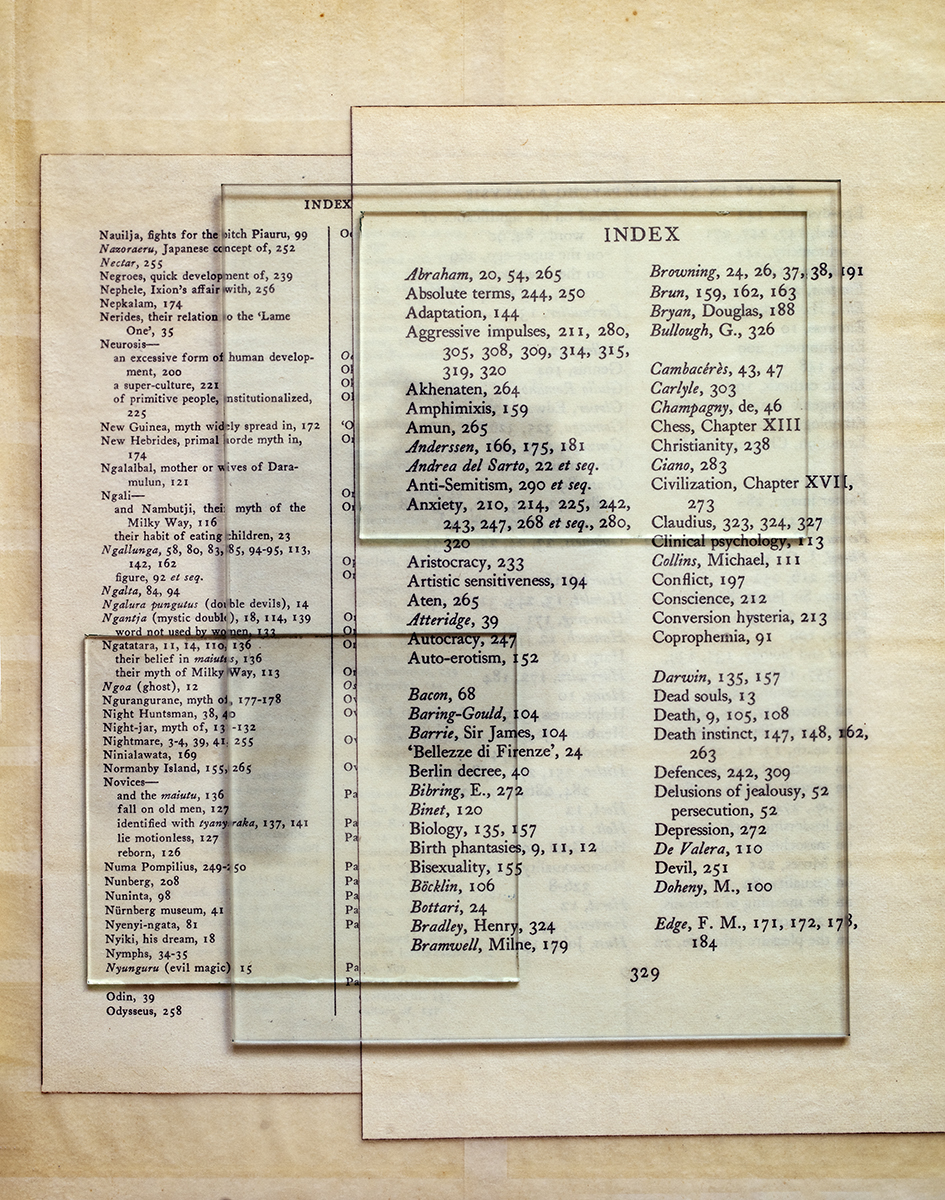 INDEX
Nauilja, fights for the bitch Piauru, 99
Nazoraeru, Japanese concept of, 252
Nectar, 255
Negroes, quick development of, 239
Nephele, Ixion's affair with, 256
Nepkalam, 174
Nerides, their relation to the 'Lame
One', 35
Neurosis—
an excessive form of human develop-
ment, 200
a super-culture, 221
of primitive people, institutionalized,
225
New Guinea, myth widely spread in, 172
New Hebrides, primal horde myth in,
174
Ngalalbal, mother or wives of Dara-
mulun, 121
Ngali—
and Nambutji, their myth of the
Milky Way, 116
their habit of eating children, 23
Ngallunga, 58, 80, 83, 85, 94-95, 113,
142, 162
figure, 92 et seq.
Ngalta, 84, 94
Ngalura pungutus (double devils), 14
Ngantja (mystic double), 18, 114, 139
word not used by women, 133
Ngatatara, 11, 14, 110, 136
their belief in maiutus, 136
their myth of Milky Way, 113
Ngoa (ghost), 12
Ngurangurane, myth of, 177-178
Night Huntsman, 38, 40
Night-jar, myth of, 131-132
Nightmare, 3-4, 39, 41, 255
Ninialawata, 169
Normanby Island, 155, 265
Novices—
and the maiutu, 136
fall on old men, 127
identified with 137, 141
lie motionless, 127
reborn, 126
Numa Pompilius, 249-250
Nunberg, 208
Nuninta, 98
Nürnberg museum, 41
Nyenyi-ngata, 81
Nyiki, his dream, 18
Nymphs, 34-35
Nyunguru (evil magic) 15
Odin, 39
Odysseus, 258
INDEX
Abraham, 20, 54, 265
Absolute terms, 244, 250
Adaptation, 144
Aggressive impulses, 211, 280,
305, 308, 309, 314, 315,
319, 320
Akhenaten, 264
Amphimixis, 159
Amun, 265
Anderssen, 166, 175, 181
Andrea del Sarto, 22 et seq.
Anti-Semitism, 290 et seq.
Anxiety, 210, 214, 225, 242,
243, 247, 268 et seq., 280,
320
Aristocracy, 233
Artistic sensitiveness, 194
Aten, 265
Atteridge, 39
Autocracy, 247
Auto-erotism, 152
Bacon, 68
Baring-Gould, 104
Barrie, Sir James, 104
'Bellezze di Firenze', 24
Berlin decree, 40
Bibring, E., 272
Binet, 120
Biology, 135, 157
Birth phantasies, 9, 11, 12
Bisexuality, 155
Böcklin, 106
Bottari, 24
Bradley, Henry, 324
Bramwell, Milne, 179
Browning, 24, 26, 37, 38, 191
Brun, 159, 162, 163
Bryan, Douglas, 188
Bullough, G., 326
Cambacérès, 43, 47
Carlyle, 303
Champagny, de, 46
Chess, Chapter XIII
Christianity, 238
Ciano, 283
Civilization, Chapter XVII,
273
Claudius, 323, 324, 327
Clinical psychology, 113
Collins, Michael, 111
Conflict, 197
Conscience, 212
Conversion hysteria, 213
Coprophemia, 91
Darwin, 135, 157
Dead souls, 13
Death, 9, 105, 108
Death instinct, 147, 148, 162,
263
Defences, 242, 309
Delusions of jealousy, 52
persecution, 52
Depression, 272
De Valera, 110
Devil, 251
Doheny, M., 100
Edge, F. M., 171, 172, 178,
184
329